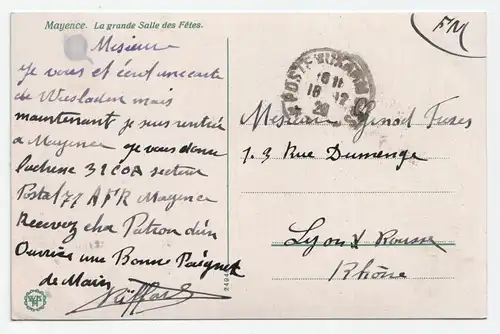 Mayence. La grande Salle des Fêtes.
FM
Mesieur
je vous et écrit une carte
de Wiesladen mais
maintenant je suis rentrée
a Mayence je vous done
l'adresse 312 COA secteur
Postal 77 AFR Mayence
Recevez cher Patron d'un
Ouvrier une Bonne Poignet
de Main
POSTE MILITAIRE
18 12
Mesieur Fuses
1.3 Rue Dumenge
Lyon X Rousse
Rhône